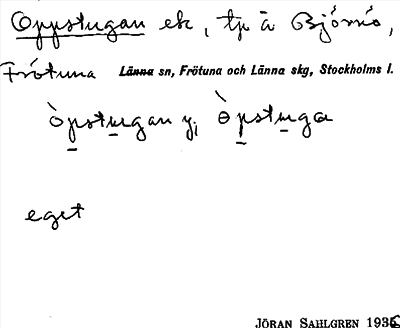 Oppstugan ek, tp å Björnö,
Frötuna Länna sn, Frötuna och Länna skg, Stockholms l.
òpstugan y, òpstuga
eget
JÖRAN SAHLGREN 1935